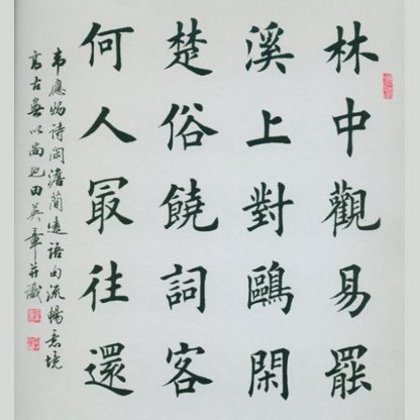 林中觀易罷
溪上對鷗閑
楚俗饒詞客
何人最往還
韋應物詩閑澹簡遠語句流暢意境
高古無以尚也田英章并識